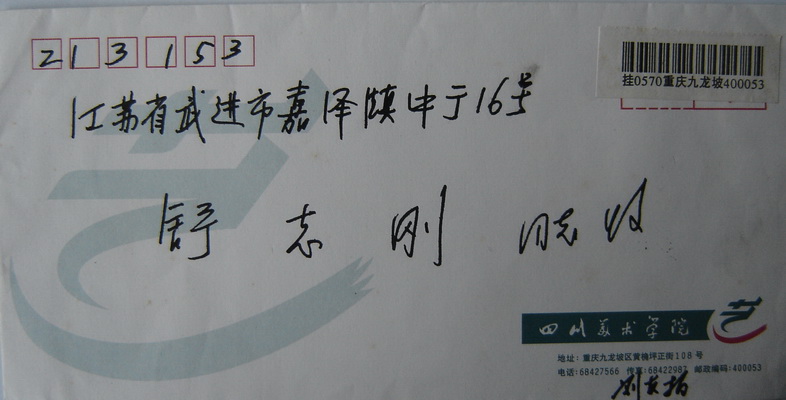 213153
挂0570重庆九龙坡400053
江苏省武进市嘉泽镇中于16号
舒志刚 同志收
四川美术学院
地址：重庆九龙坡区黄桷坪正街108号
电话：68427566 传真：68422987 邮政编码：400053